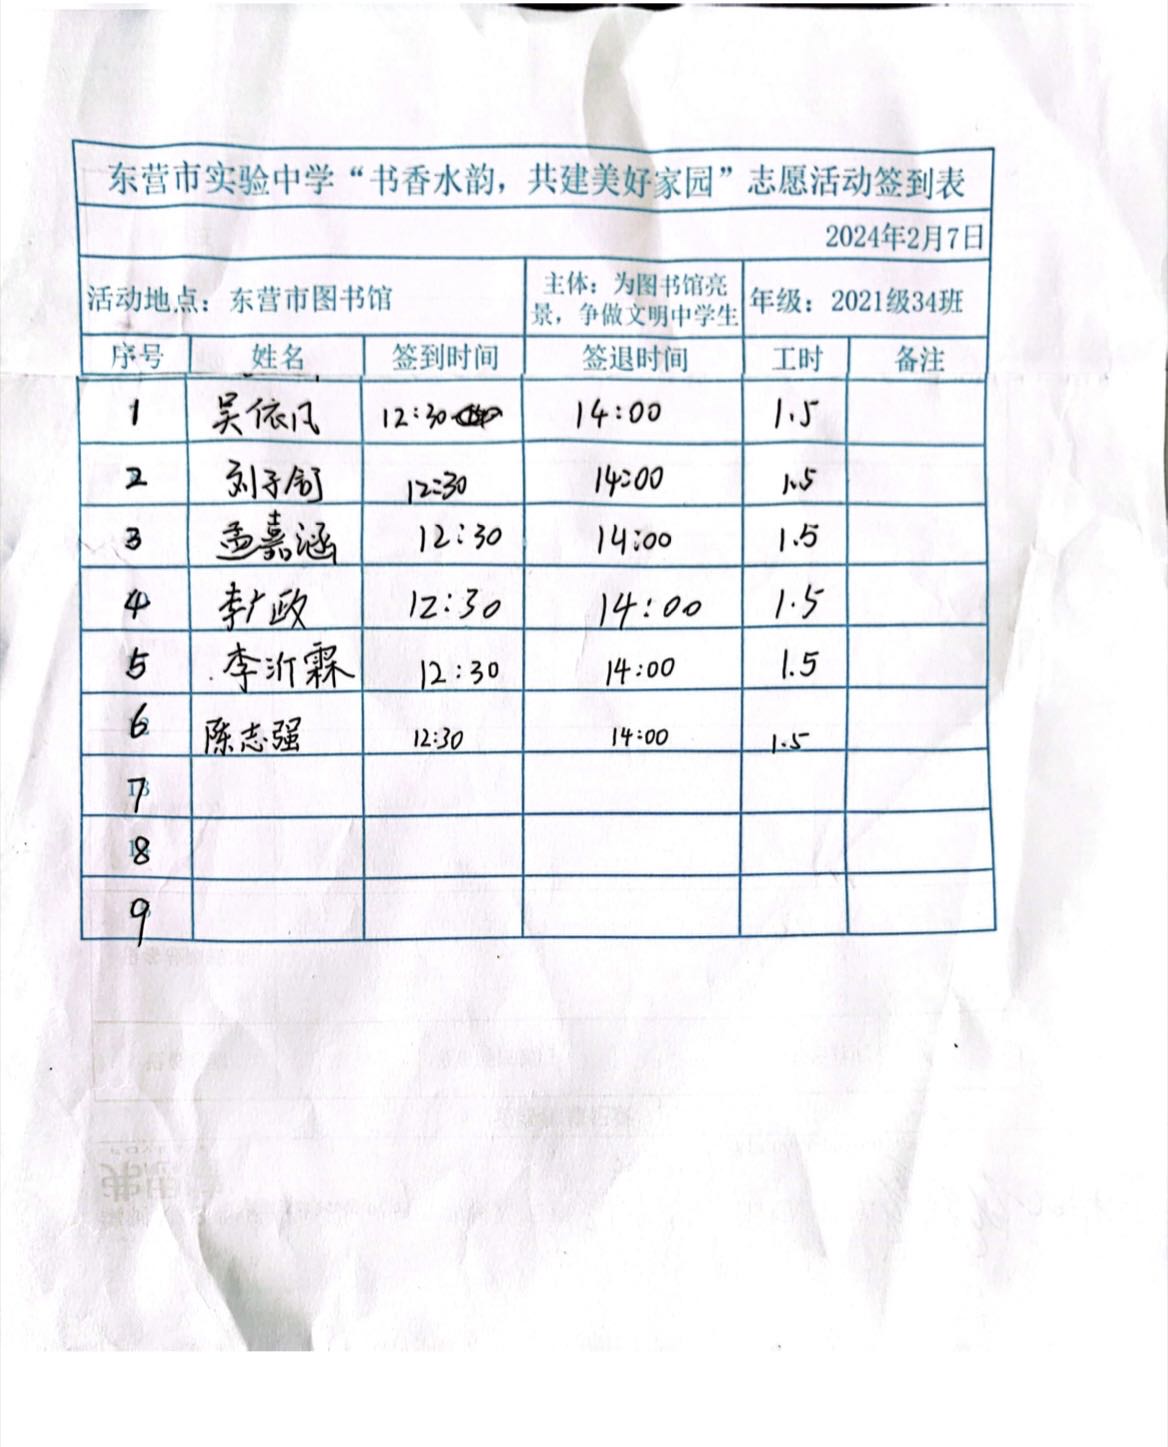 东营市实验中学“书香水韵，共建美好家园”志愿活动签到表
2024年2月7日
活动地点：东营市图书馆 主体：为图书馆亮景，争做文明中学生 年级：2021级34班
序号 姓名 签到时间 签退时间 工时 备注
1 吴依凡 12:30 14:00 1.5
2 刘子舒 12:30 14:00 1.5
3 孟嘉涵 12:30 14:00 1.5
4 李广政 12:30 14:00 1.5
5 李沂霖 12:30 14:00 1.5
6 陈志强 12:30 14:00 1.5
7
8
9